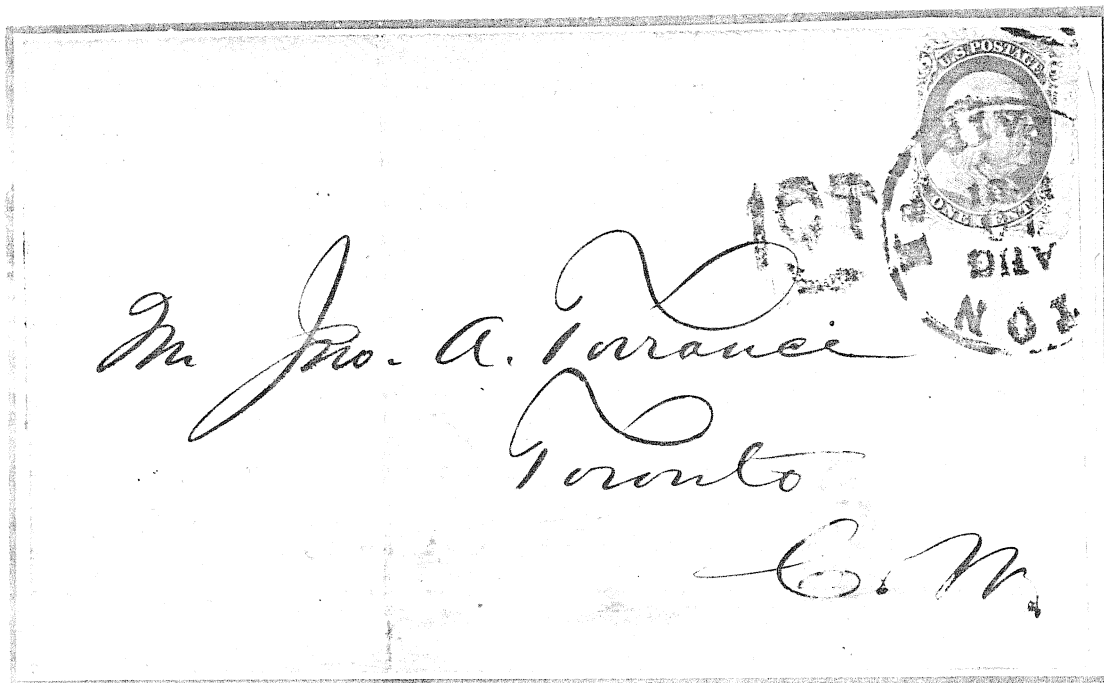 U.S. POSTAGE
ONE CENT
1 CT
AUG
Mr Jno. A. Torrance
Toronto
C. W.